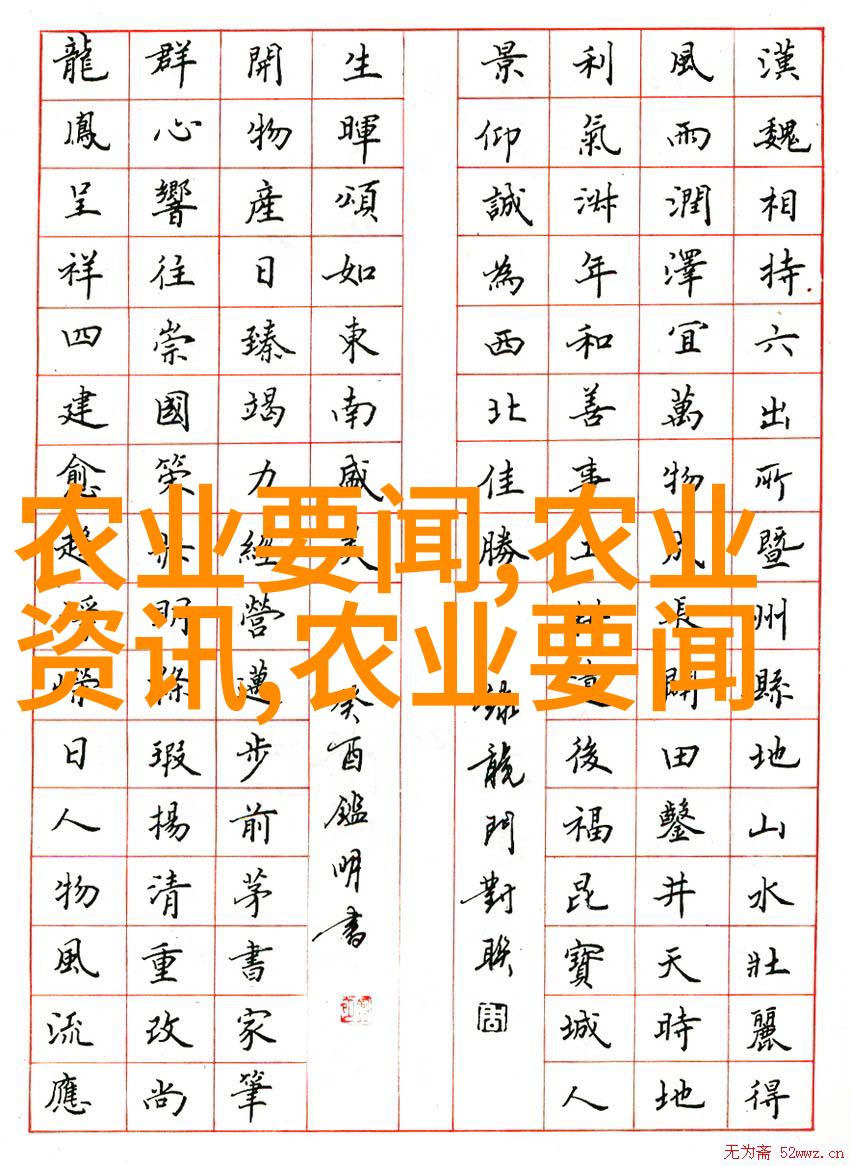 漢魏相持六出所暨州縣地山水壯麗得
風雨潤澤宜萬物成長闢田鑿井天時地
利氣淑年和善事後福昆寶城人
景仰誠為西北佳勝
錄龍門對聯
生暉頌如東南盛美
癸酉鑑明書
開物產日臻竭力經營邁步前茅書家筆
群心響往崇國策明條瑕揚清重改尚
龍鳳呈祥四建愈趨榮日人物風流應
农业要闻,农业
资讯,农业要闻
无为斋 52wwz.cn